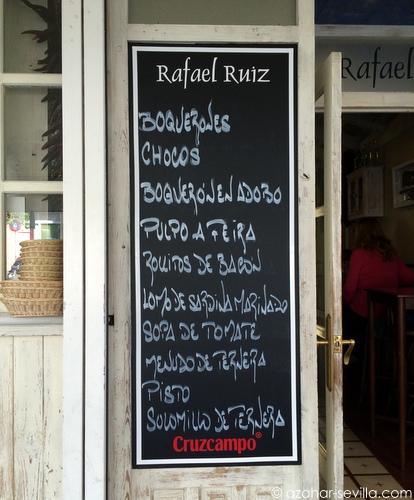 Rafael Ruiz
Rafael
BOQUERONES
CHOCOS
BOQUERÓN EN ADOBO
PULPO A FEIRA
ROLLITOS DE BACÓN
LOMO DE SARDINA MARINADO
SOPA DE TOMATE
MENUDO DE TERNERA
PISTO
SOLOMILLO DE TERNERA
Cruzcampo®
© azahar-sevilla.com